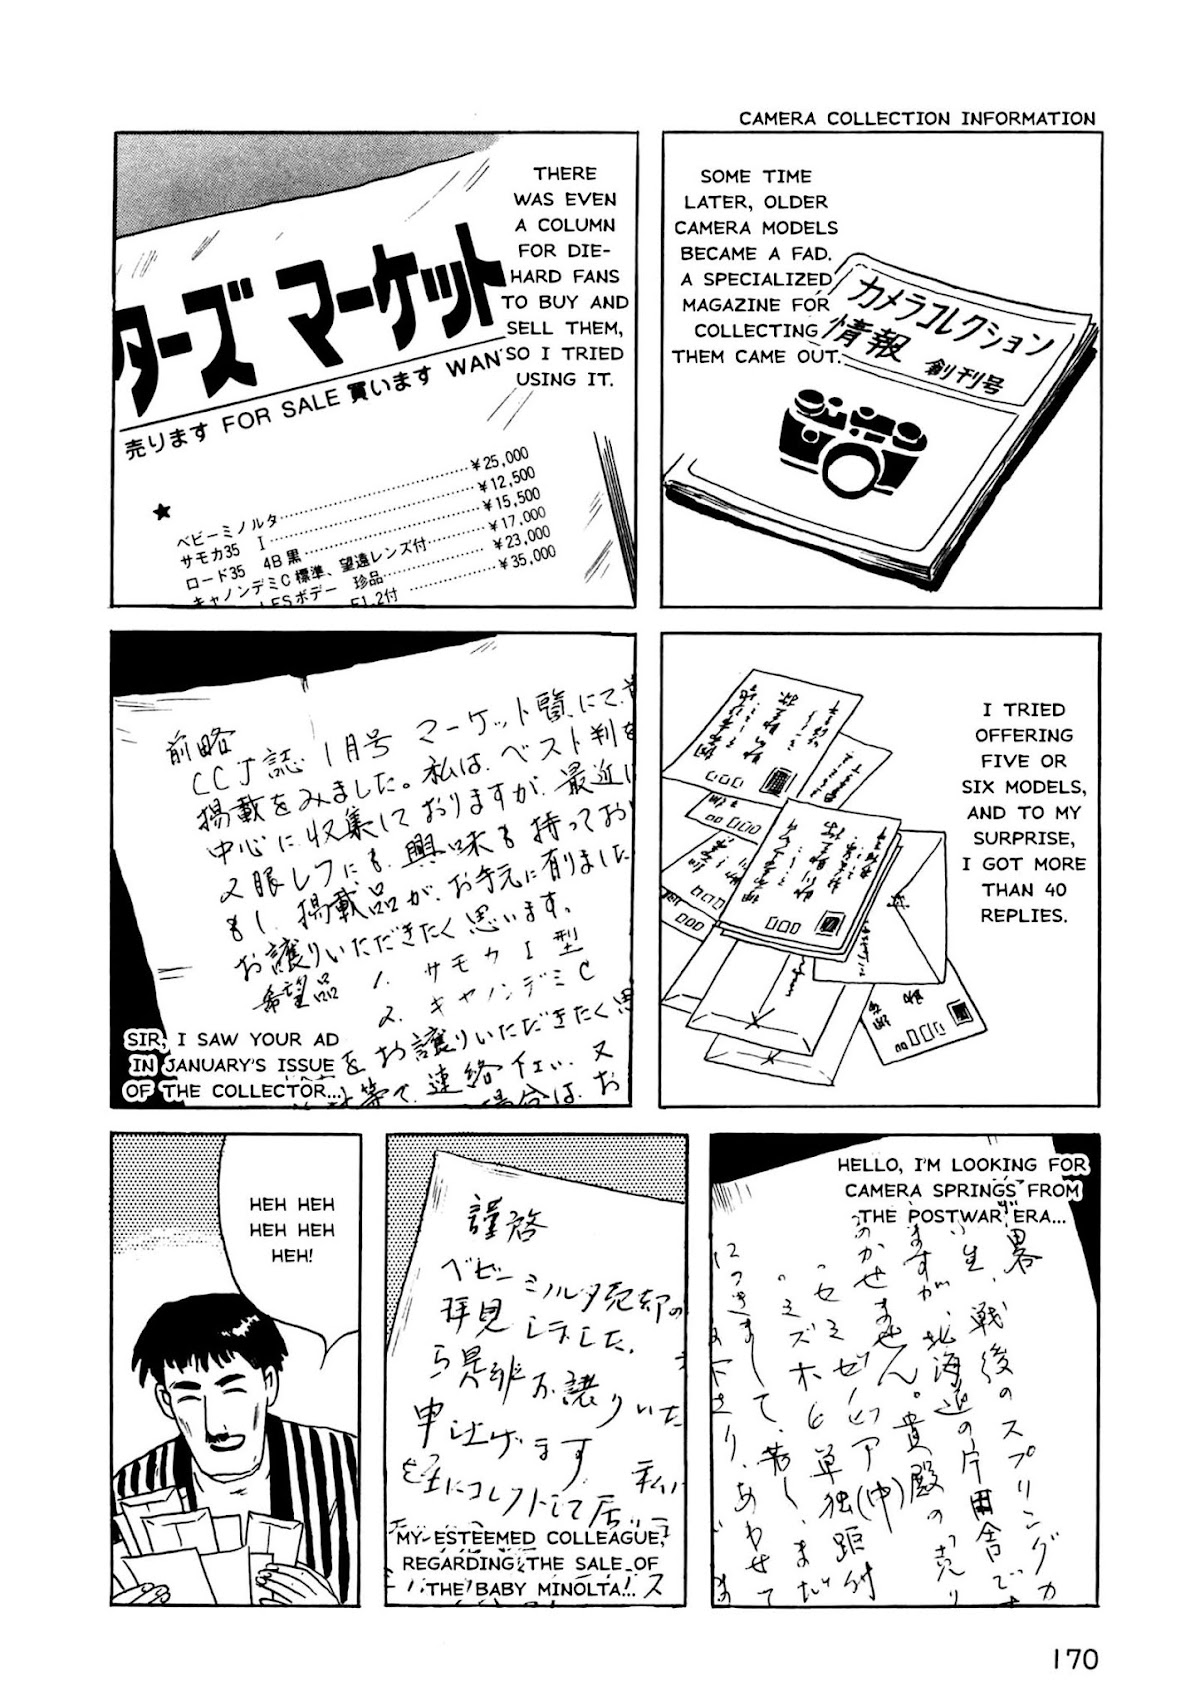 CAMERA COLLECTION INFORMATION
SOME TIME
LATER, OLDER
CAMERA MODELS
BECAME A FAD.
A SPECIALIZED
MAGAZINE FOR
COLLECTING
THEM CAME OUT.
カメラコレクション
情報 創刊号
THERE
WAS EVEN
A COLUMN
FOR DIE-
HARD FANS
TO BUY AND
SELL THEM,
SO I TRIED
USING IT.
ターズ マーケット
売ります FOR SALE 買います WAN
★
ベビーミノルタ……¥25,000
サモカ35 I……¥12,500
ロード35 4B黒……¥15,500
キャノンデミC標準、望遠レンズ付……¥17,000
LESボデー 珍品……¥23,000
F1.2付……¥35,000
I TRIED
OFFERING
FIVE OR
SIX MODELS,
AND TO MY
SURPRISE,
I GOT MORE
THAN 40
REPLIES.
前略
CCJ誌 1月号 マーケット覧にて、
掲載をみました。私は、ベスト判を
中心に収集しておりますが、最近は
2眼レフにも、興味も持ってお
もし、掲載品が、お手元に有りました
お譲りいただきたく思います。
希望品 1. サモカ I 型
2. キャノンデミC
をお譲りいただきたく思
等で、連絡下さい。又
場合は、お
SIR, I SAW YOUR AD
IN JANUARY'S ISSUE
OF THE COLLECTOR...
HELLO, I'M LOOKING FOR
CAMERA SPRINGS FROM
THE POSTWAR ERA...
畧
生、戦後のスプリングカ
ますが、北海道の片田舎で
のかせません。貴殿の「売り
セミゼノビア(中)
ミズホ6 単独距付
につきまして、若し、まだ
下さり、あわせて
謹啓
ベビーミルタ売却の
拝見しました。
ら是非お譲りいた
申上げます
私
にコレクトして居
MY ESTEEMED COLLEAGUE,
REGARDING THE SALE OF
THE BABY MINOLTA!...
HEH HEH
HEH HEH
HEH!
170